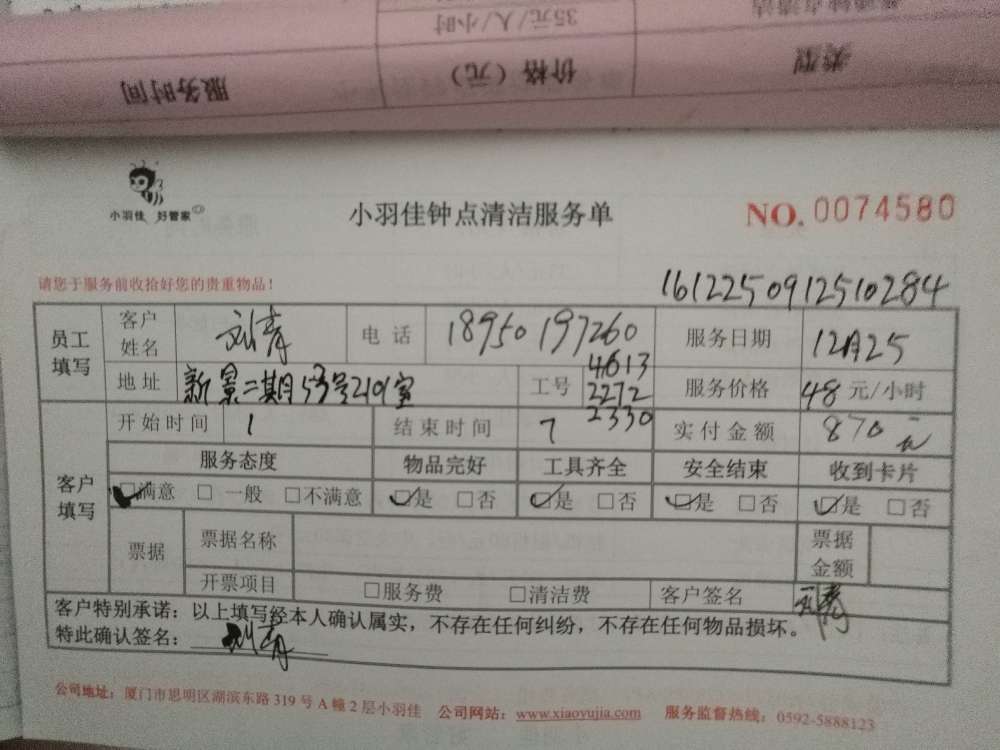 35元/人/小时
类型 价格（元） 服务时间
小羽佳 好管家
小羽佳钟点清洁服务单
NO. 0074580
请您于服务前收拾好您的贵重物品！
1612250912510284
员工填写 客户姓名 刘青 电话 18950197260 服务日期 12月25
地址 新景二期53号2101室 工号 4613 2272 2330 服务价格 48元/小时
客户填写 开始时间 1 结束时间 7 实付金额 870元
服务态度 物品完好 工具齐全 安全结束 收到卡片
☑满意 □一般 □不满意 ☑是 □否 ☑是 □否 ☑是 □否 ☑是 □否
票据 票据名称 票据金额
开票项目 □服务费 □清洁费 客户签名 刘青
客户特别承诺：以上填写经本人确认属实，不存在任何纠纷，不存在任何物品损坏。
特此确认签名：刘青
公司地址：厦门市思明区湖滨东路319号A幢2层小羽佳 公司网站：www.xiaoyujia.com 服务监督热线：0592-5888123